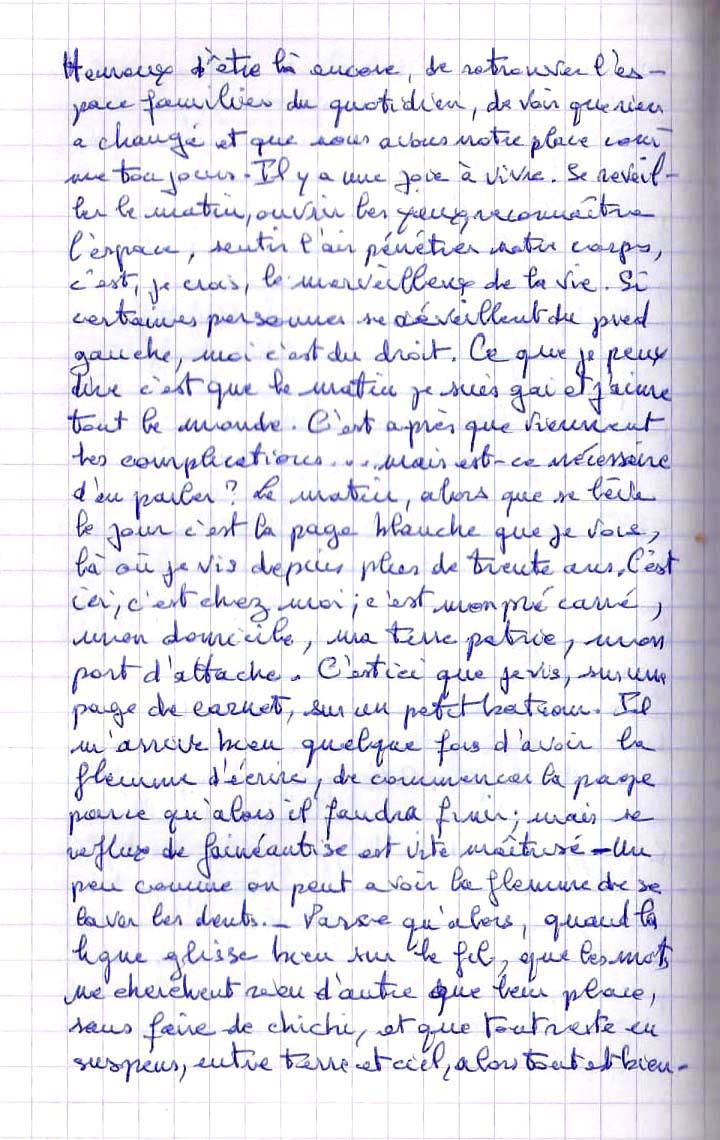 Heureux d'être là encore, de retrouver l'es-
pace familier du quotidien, de voir que rien
a changé et que nous avons notre place com-
me toujours. Il y a une joie à vivre. Se réveil-
ler le matin, ouvrir les yeux, reconnaître
l'espace, sentir l'air pénétrer notre corps,
c'est, je crois, le merveilleux de la vie. Si
certaines personnes se réveillent du pied
gauche, moi c'est du droit. Ce que je peux
dire c'est que le matin je suis gai et j'aime
tout le monde. C'est après que viennent
les complications... mais est-ce nécessaire
d'en parler? Le matin, alors que se lève
le jour c'est la page blanche que je vois,
là où je vis depuis plus de trente ans. C'est
ici, c'est chez moi; c'est mon pré carré,
mon domicile, ma terre patrie, mon
port d'attache. C'est ici que je vis, sur une
page de carnet, sur un petit bateau. Il
m'arrive bien quelque fois d'avoir la
flemme d'écrire, de commencer la page
parce qu'alors il faudra finir; mais ce
reflux de fainéantise est vite maîtrisé - Un
peu comme on peut avoir la flemme de se
laver les dents. - Parce qu'alors, quand la
ligne glisse bien sur le fil, que les mots
ne cherchent rien d'autre que leur place,
sans faire de chichi, et que tout reste en
suspens, entre terre et ciel, alors tout est bien -